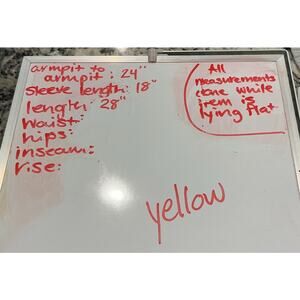 armpit to
armpit: 24"
sleeve length: 18"
length: 28"
waist:
hips:
inseam:
rise:
All
measurements
done while
item is
lying flat
yellow